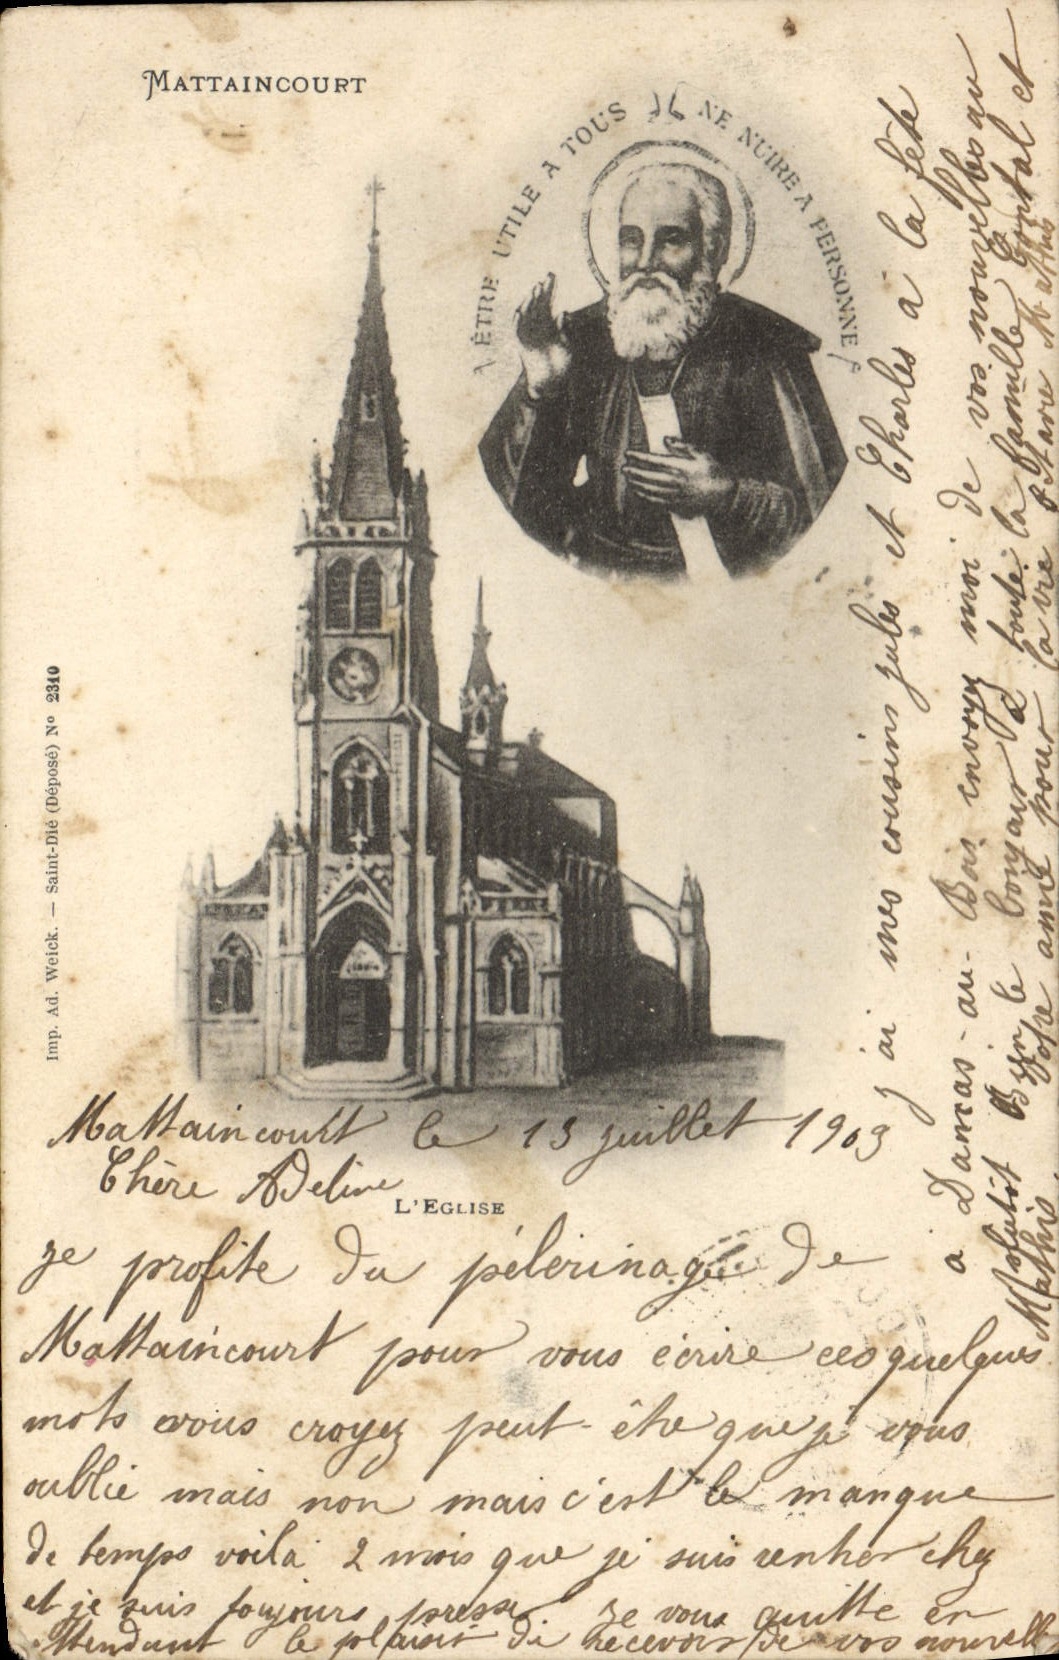 MATTAINCOURT
ÊTRE UTILE A TOUS NE NUIRE A PERSONNE
Imp. Ad. Weick. — Saint-Dié (Déposé) Nº 2310
Mattaincourt le 13 juillet 1903
Chère Adeline
L'EGLISE
je profite du pélérinage de
Mattaincourt pour vous écrire ces quelques
mots vous croyez peut-être que je vous
oublie mais non mais c'est le manque
de temps voila 2 mois que je suis rentrer chez
et je suis toujours presser je vous quitte en
Attendant le plaisir de recevoir de vos nouvell
j'ai mes cousins jules et Charles à la fête
a Damas-au-Bois envoyez moi de vos nouvelles au
plutôt Bien le bonjour à toute la famille et
Mathis Votre amie pour la vie Mathis